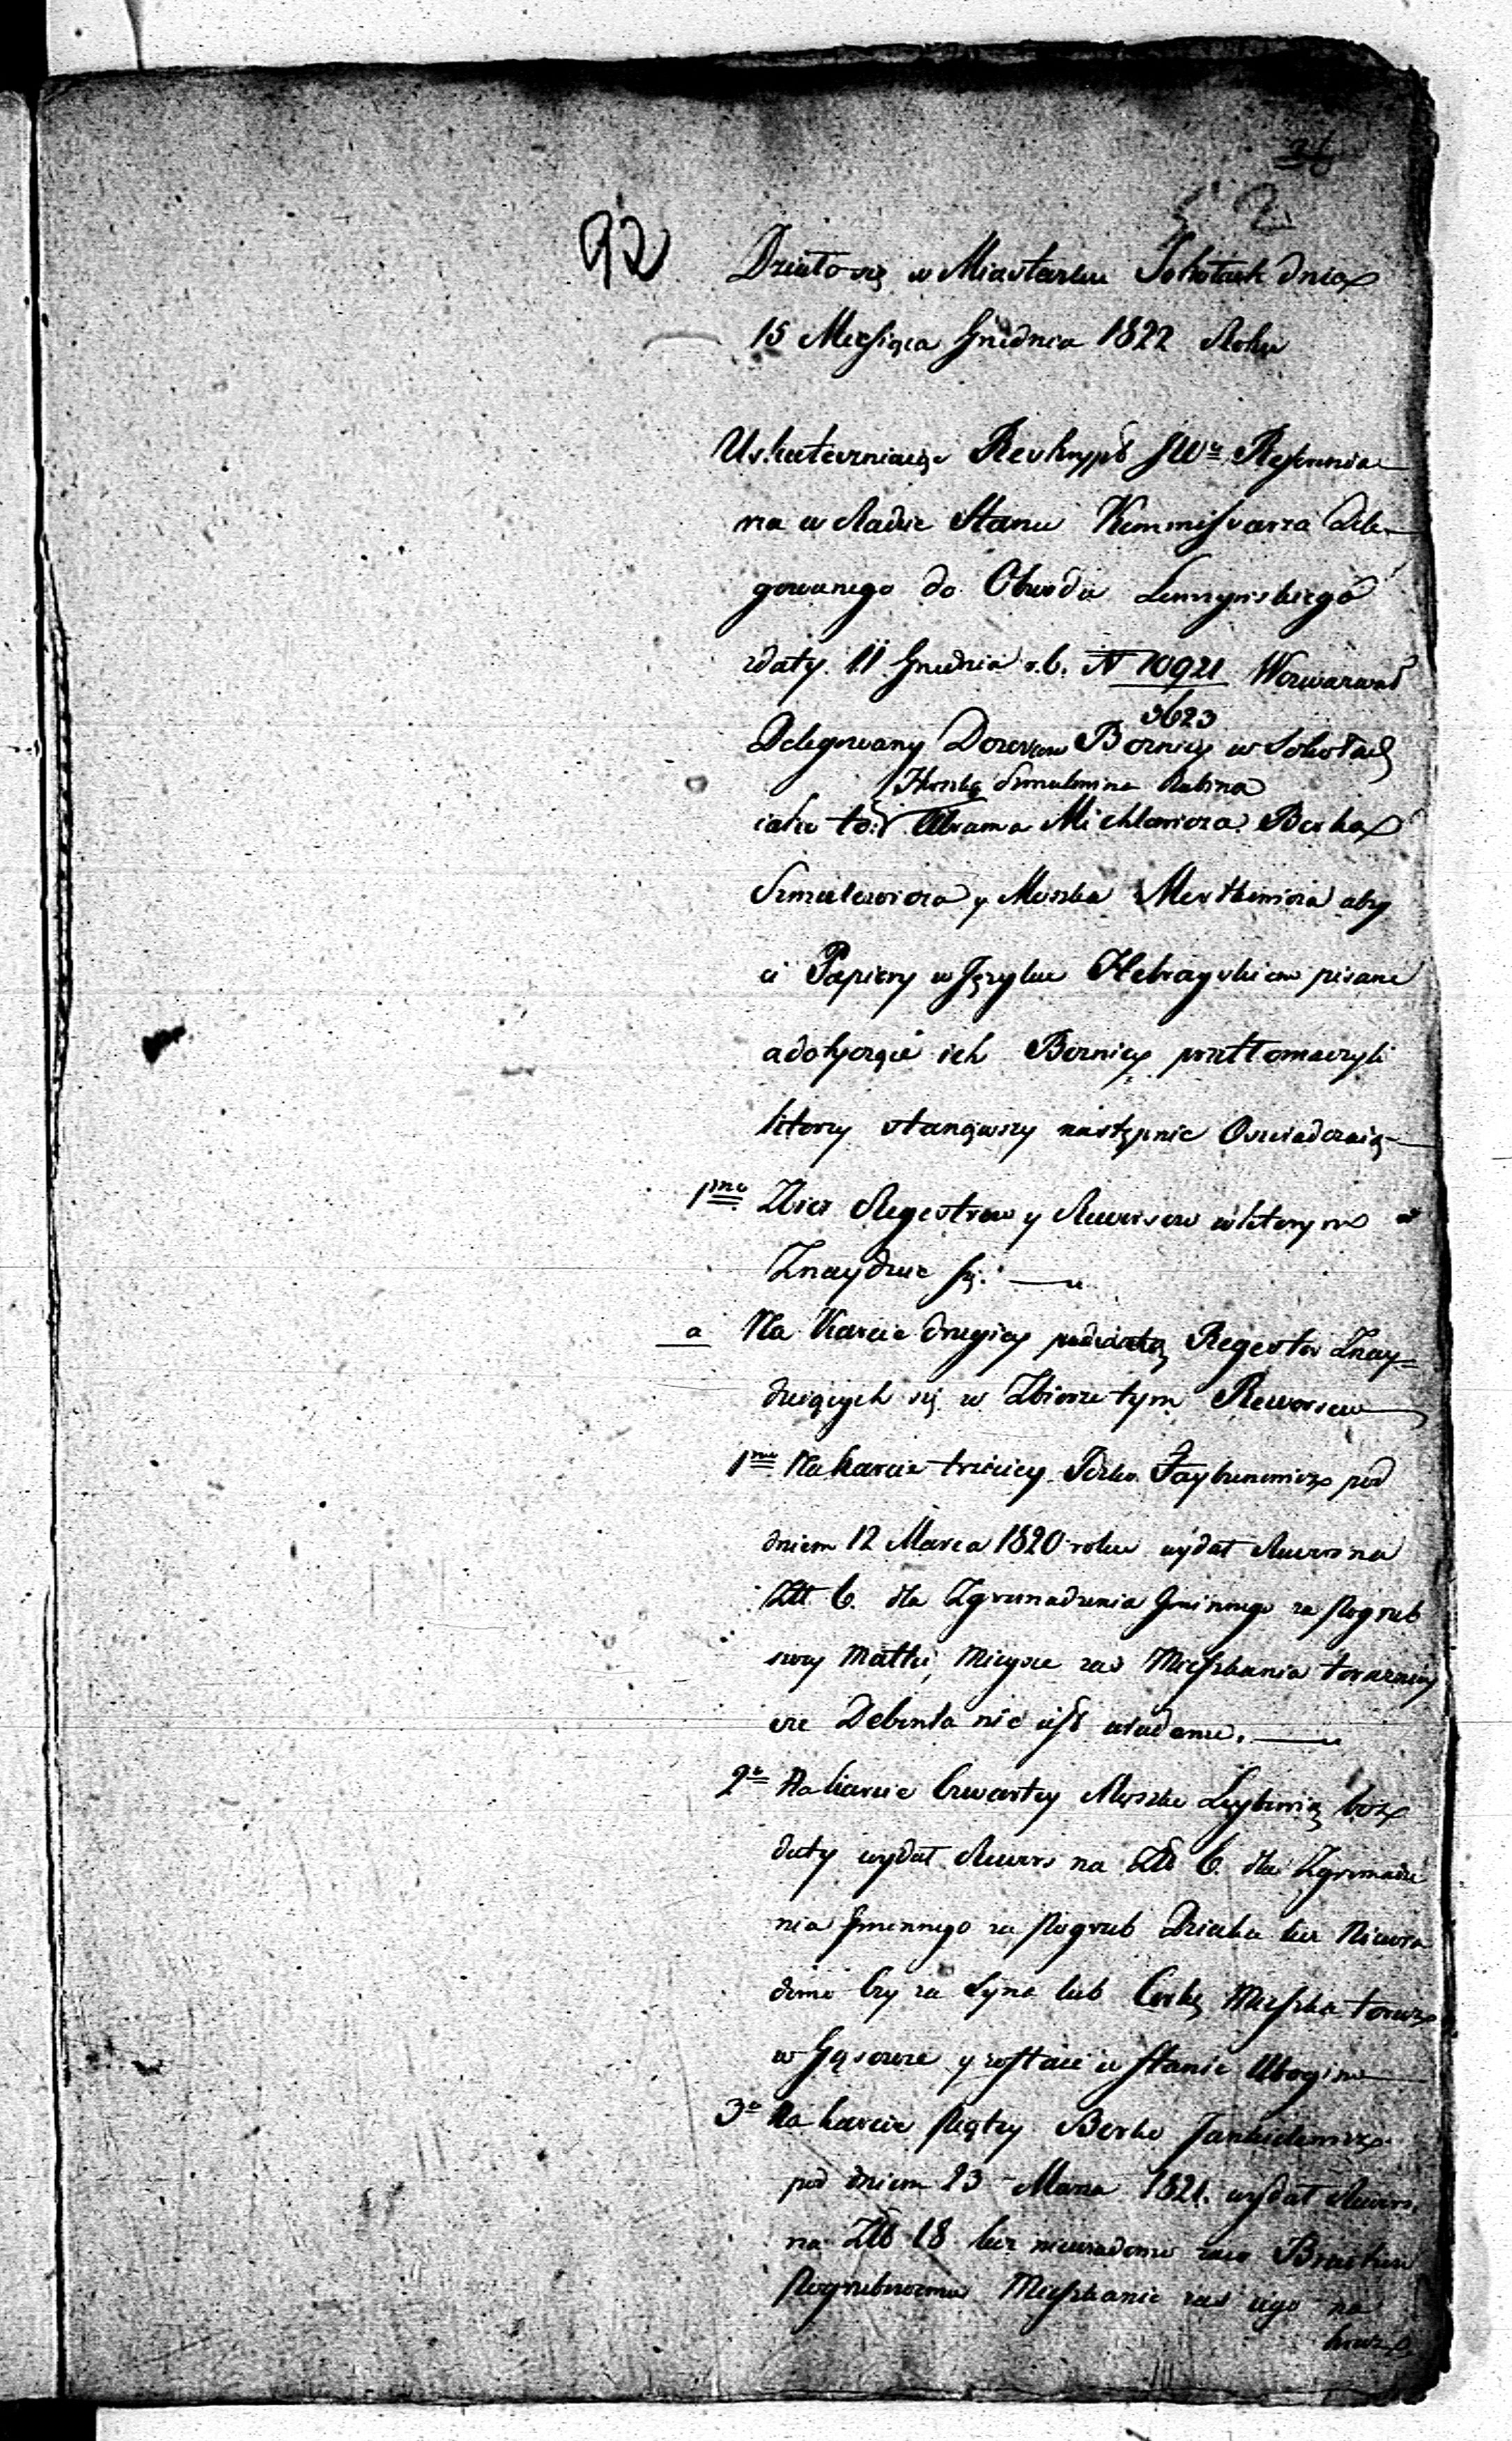 92
Działo się w Miasteczku Sobotach dnia
15 Miesiąca Grudnia 1822 Roku
Uskuteczniaiąc Reskrypt JWo Referenda
rza w Radzie Stanu Kommissarza Dele-
gowanego do Obwodu Łęczyckiego
zdaty 11 Grudnia r.b. N 10921 Wezwawszy
3623
Delegowany Dozorców Boznicy w Sobotach
Hersza Szmulowicza Rabina
iako to: Abrama Michlewicza Berka
Szmulewicza y Moszka aby
ci Papiery w Języku Hebrayskiem pisane
a dotyczące ich Boznicy przetłomaczyli
którzy stanąwszy następnie Oświadczaią
1mo Zbior Regestrow y Rewersow w którym
Znayduie się.
a Na Karcie drugiey Regestr Znay-
duiących się w Zbiorze tym Rewersow
1mo Na karcie trzeciey Faybusiewicz pod
dniem 12 Marca 1820 roku wydał Rewers na
Złł 6. dla Zgromadzenia Gminnego za Pogrzeb
swey Matki, Mieysce zas Mieszkania teraznieysz
ze Debenta nie iest wiadome.
2o Na karcie Czwartey Moszke Leybowicz bez
daty wydał Rewers na Złł 6. dla Zgromadze
nia Gminnego za Pogrzeb Dziecka lecz Niewia
domo Czy za Syna lub Corkę Mieszka teraz
w Gąsowie y zostaie w Stanie Ubogim
3o Na karcie Piątey Berke Jankielewicz
pod dniem 23 Marca 1821. wydał Rewers
na Złł 18 lecz niewiadomo Bractwu
Pogrzebowemu Mieszkanie zas iego na